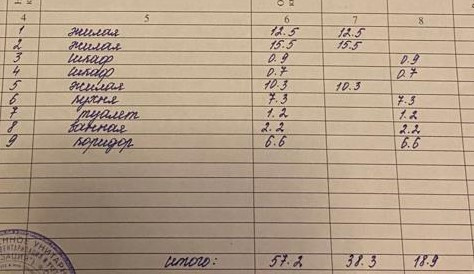 4 5 6 7 8
1 жилая 12.5 12.5
2 жилая 15.5 15.5
3 шкаф 0.9 0.9
4 шкаф 0.7 0.7
5 жилая 10.3 10.3
6 кухня 7.3 7.3
7 туалет 1.2 1.2
8 ванная 2.2 2.2
9 коридор 6.6 6.6
итого: 57.2 38.3 18.9